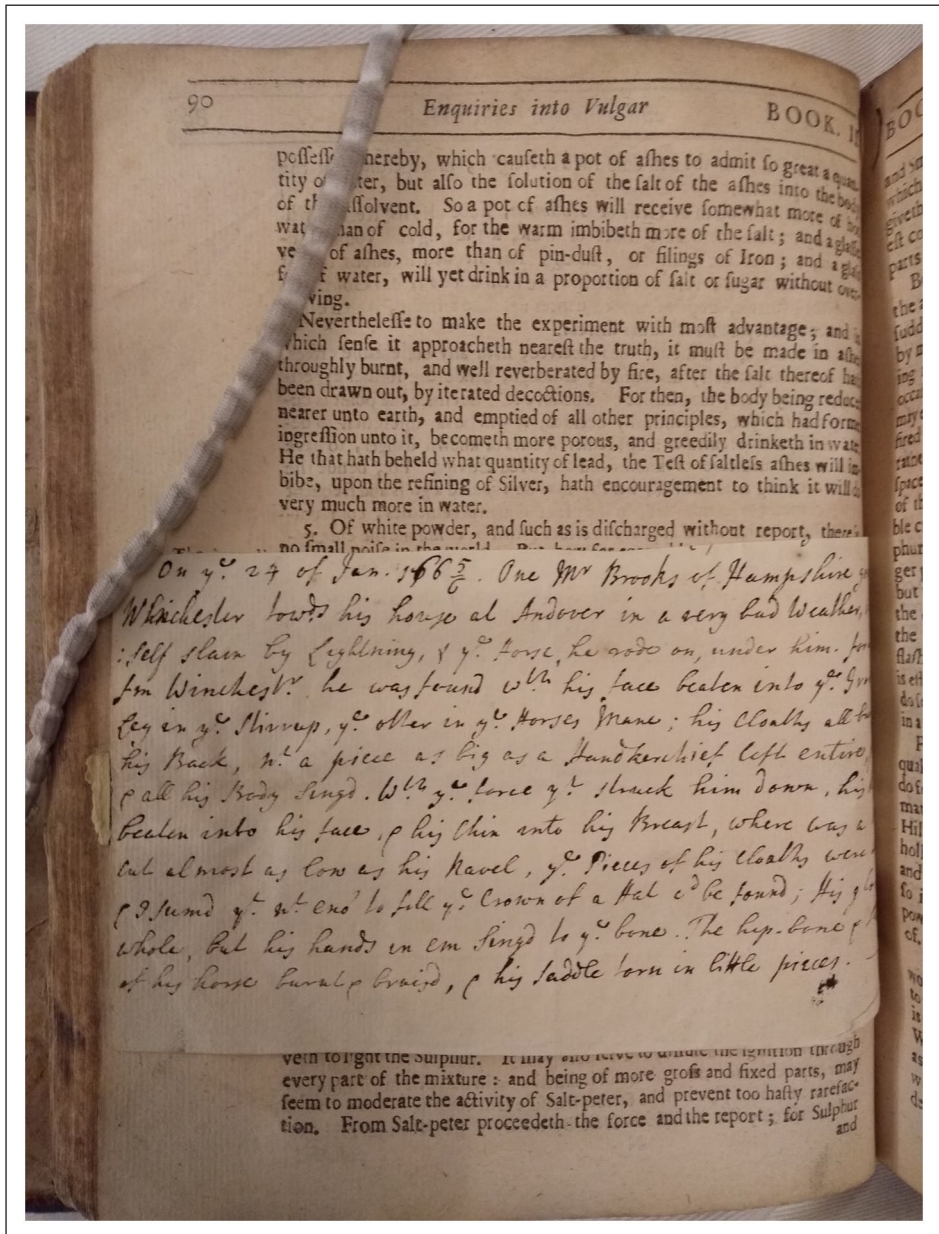 90 Enquiries into Vulgar BOOK. II
possess hereby, which causeth a pot of ashes to admit so great a quan
tity of ter, but also the solution of the salt of the ashes into the body
of th ssolvent. So a pot of ashes will receive somewhat more of hot
wat han of cold, for the warm imbibeth more of the salt; and a glasse
ve of ashes, more than of pin-dust, or filings of Iron; and a glas
f f water, will yet drink in a proportion of salt or sugar without over
wing.
Neverthelesse to make the experiment with most advantage; and
which sense it approacheth nearest the truth, it must be made in ashe
throughly burnt, and well reverberated by fire, after the salt thereof ha
been drawn out, by iterated decoctions. For then, the body being reduc
nearer unto earth, and emptied of all other principles, which had form
ingression unto it, becometh more porous, and greedily drinketh in wate
He that hath beheld what quantity of lead, the Test of saltless ashes will im
bibe, upon the refining of Silver, hath encouragement to think it will d
very much more in water.
5. Of white powder, and such as is discharged without report, there i
no small noise in the world. But how far
On yᵉ 24 of Jan. 166 5/6. One Mʳ Brooks of Hampshire
Whinchester towᵈs his house at Andover in a very bad Weather,
:self slain by Lightning, & yᵉ Horse, he rode on, under him. for
fm Winchestʳ he was found wᵗʰ his face beaten into yᵉ Gro
Leg in yᵉ Stirrup, yᵉ other in yᵉ Horses Mane; his Cloaths all
his Back, nᵗ a piece as big as a Handkerchief left entire
& all his Body Singd. Wᵗʰ yᵉ force yᵗ struck him down, his
beaten into his face, & his Chin into his Breast, where was a
cut almost as low as his Navel, yᵉ Pieces of his Cloaths were
yᵗ nᵗ eno' to fill yᵉ Crown of a Hat cᵈ be found; His
whole, but his hands in em Singd to yᵉ bone. The hip-bone &
of his horse burnt & bruisd, & his Saddle torn in little pieces.
veth to ignt the Sulphur. It may also serve to dilute the ignition through
every part of the mixture: and being of more gross and fixed parts, may
seem to moderate the activity of Salt-peter, and prevent too hasty rarefac-
tion. From Salt-peter proceedeth the force and the report; for Sulphur
and